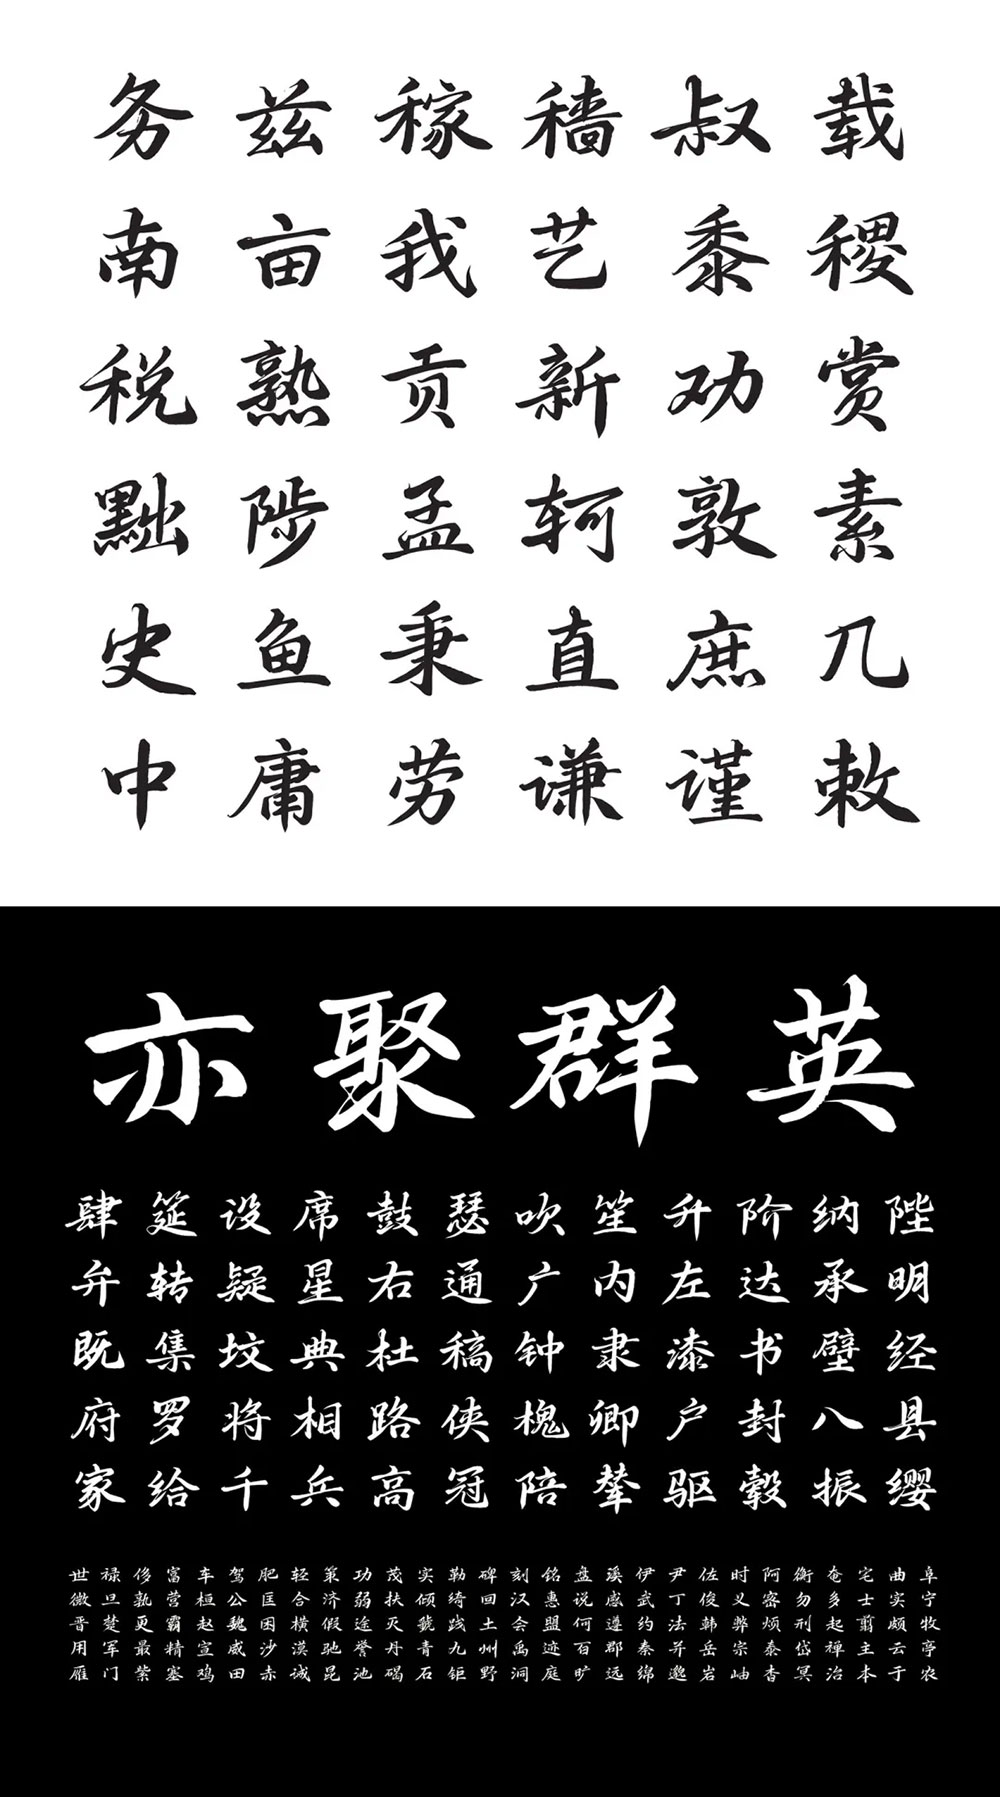 务兹稼穑叔载
南亩我艺黍稷
税熟贡新劝赏
黜陟孟轲敦素
史鱼秉直庶几
中庸劳谦谨敕
亦聚群英
肆筵设席鼓瑟吹笙升阶纳陛
弁转疑星右通广内左达承明
既集坟典杜稿钟隶漆书壁经
府罗将相路侠槐卿户封八县
家给千兵高冠陪辇驱毂振缨
世禄侈富车驾肥轻策功茂实勒碑刻铭盘溪伊尹佐时阿衡奄宅曲阜
微旦孰营公匡合济弱扶倾绮回汉惠说感武丁俊义密勿多士实宁
晋楚更霸赵魏困横假途灭虢践土会盟何遵约法韩弊烦刑起翦颇牧
用军最精宣威沙漠驰誉丹青九州禹迹百郡秦并岳宗泰岱禅主云亭
雁门紫塞鸡田赤诚昆池碣石钜野洞庭旷远绵邈岩岫杳冥治本于农